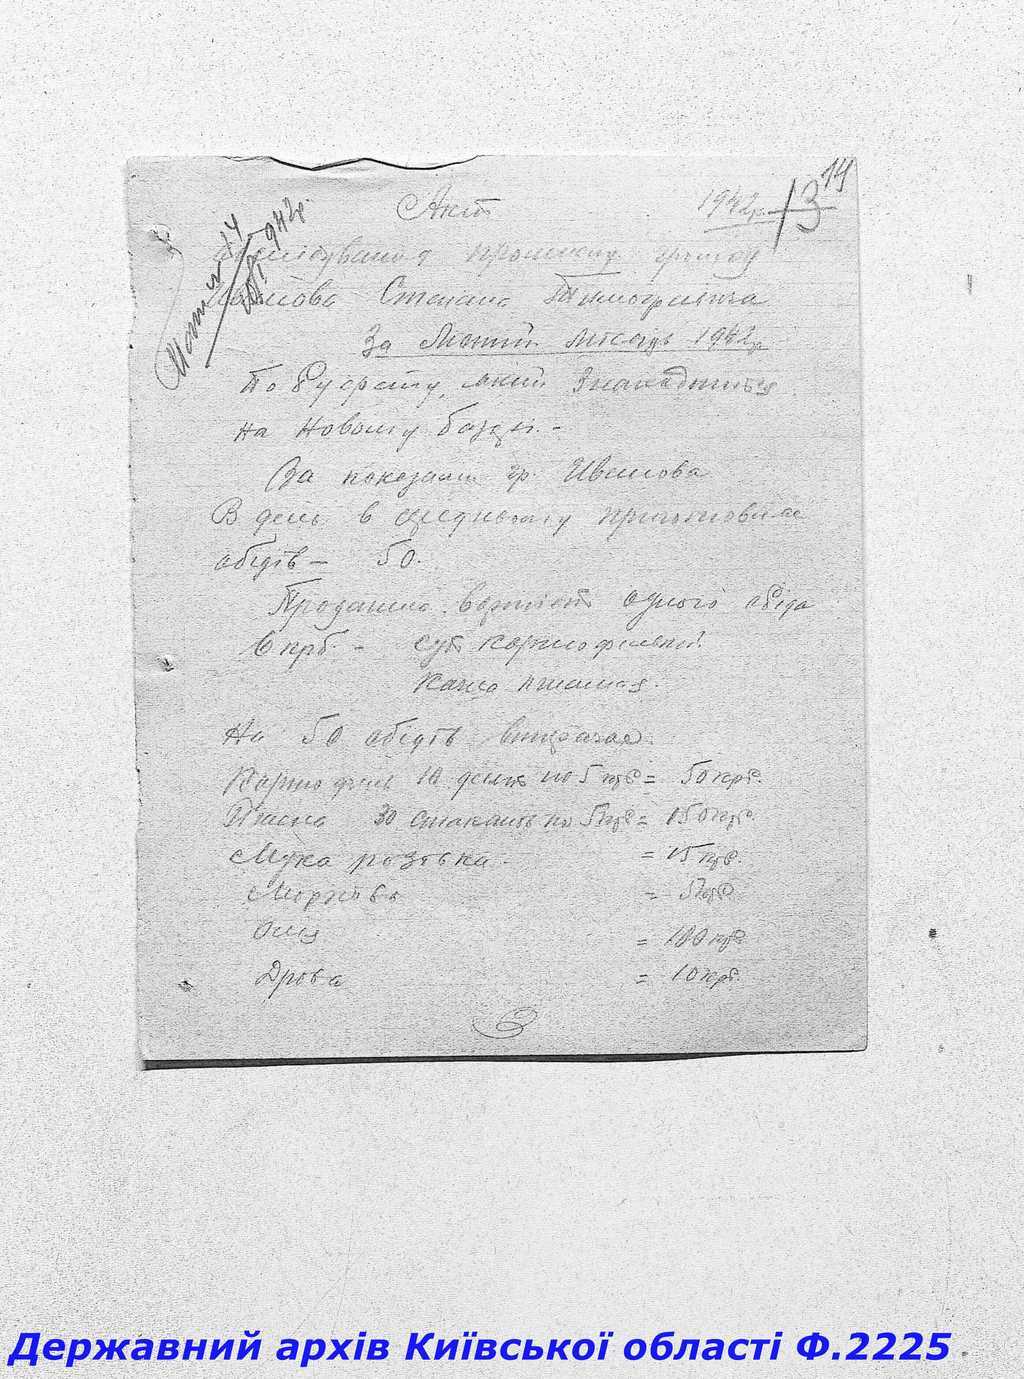 14
Акт 1942р. 13
прошиву
Іванова Степана Тимофієвича
За Лютий місяць 1942р
По буфету, який знаходиться
на Новому базарі. –
За показами гр. Иванова
В день в средньому приготовляє
обідів – 50.
Продажна вартість одного обіда
6 крб. – суп картофельний
Каша пшонная.
На 50 обідів витрачає
Картофель 10 по 5 крб = 50 крб.
Пшона 30 стаканів по 5 крб = 150 крб.
Мука розовка. = 15 крб.
Морковь = 5 крб
Олія = 100 крб
Дрова = 10 крб.
Державний архів Київської області Ф.2225